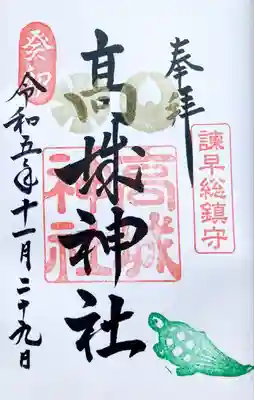 奉拝
諫早総鎮守
高城神社
高城
神社
癸卯
令和五年十一月二十九日